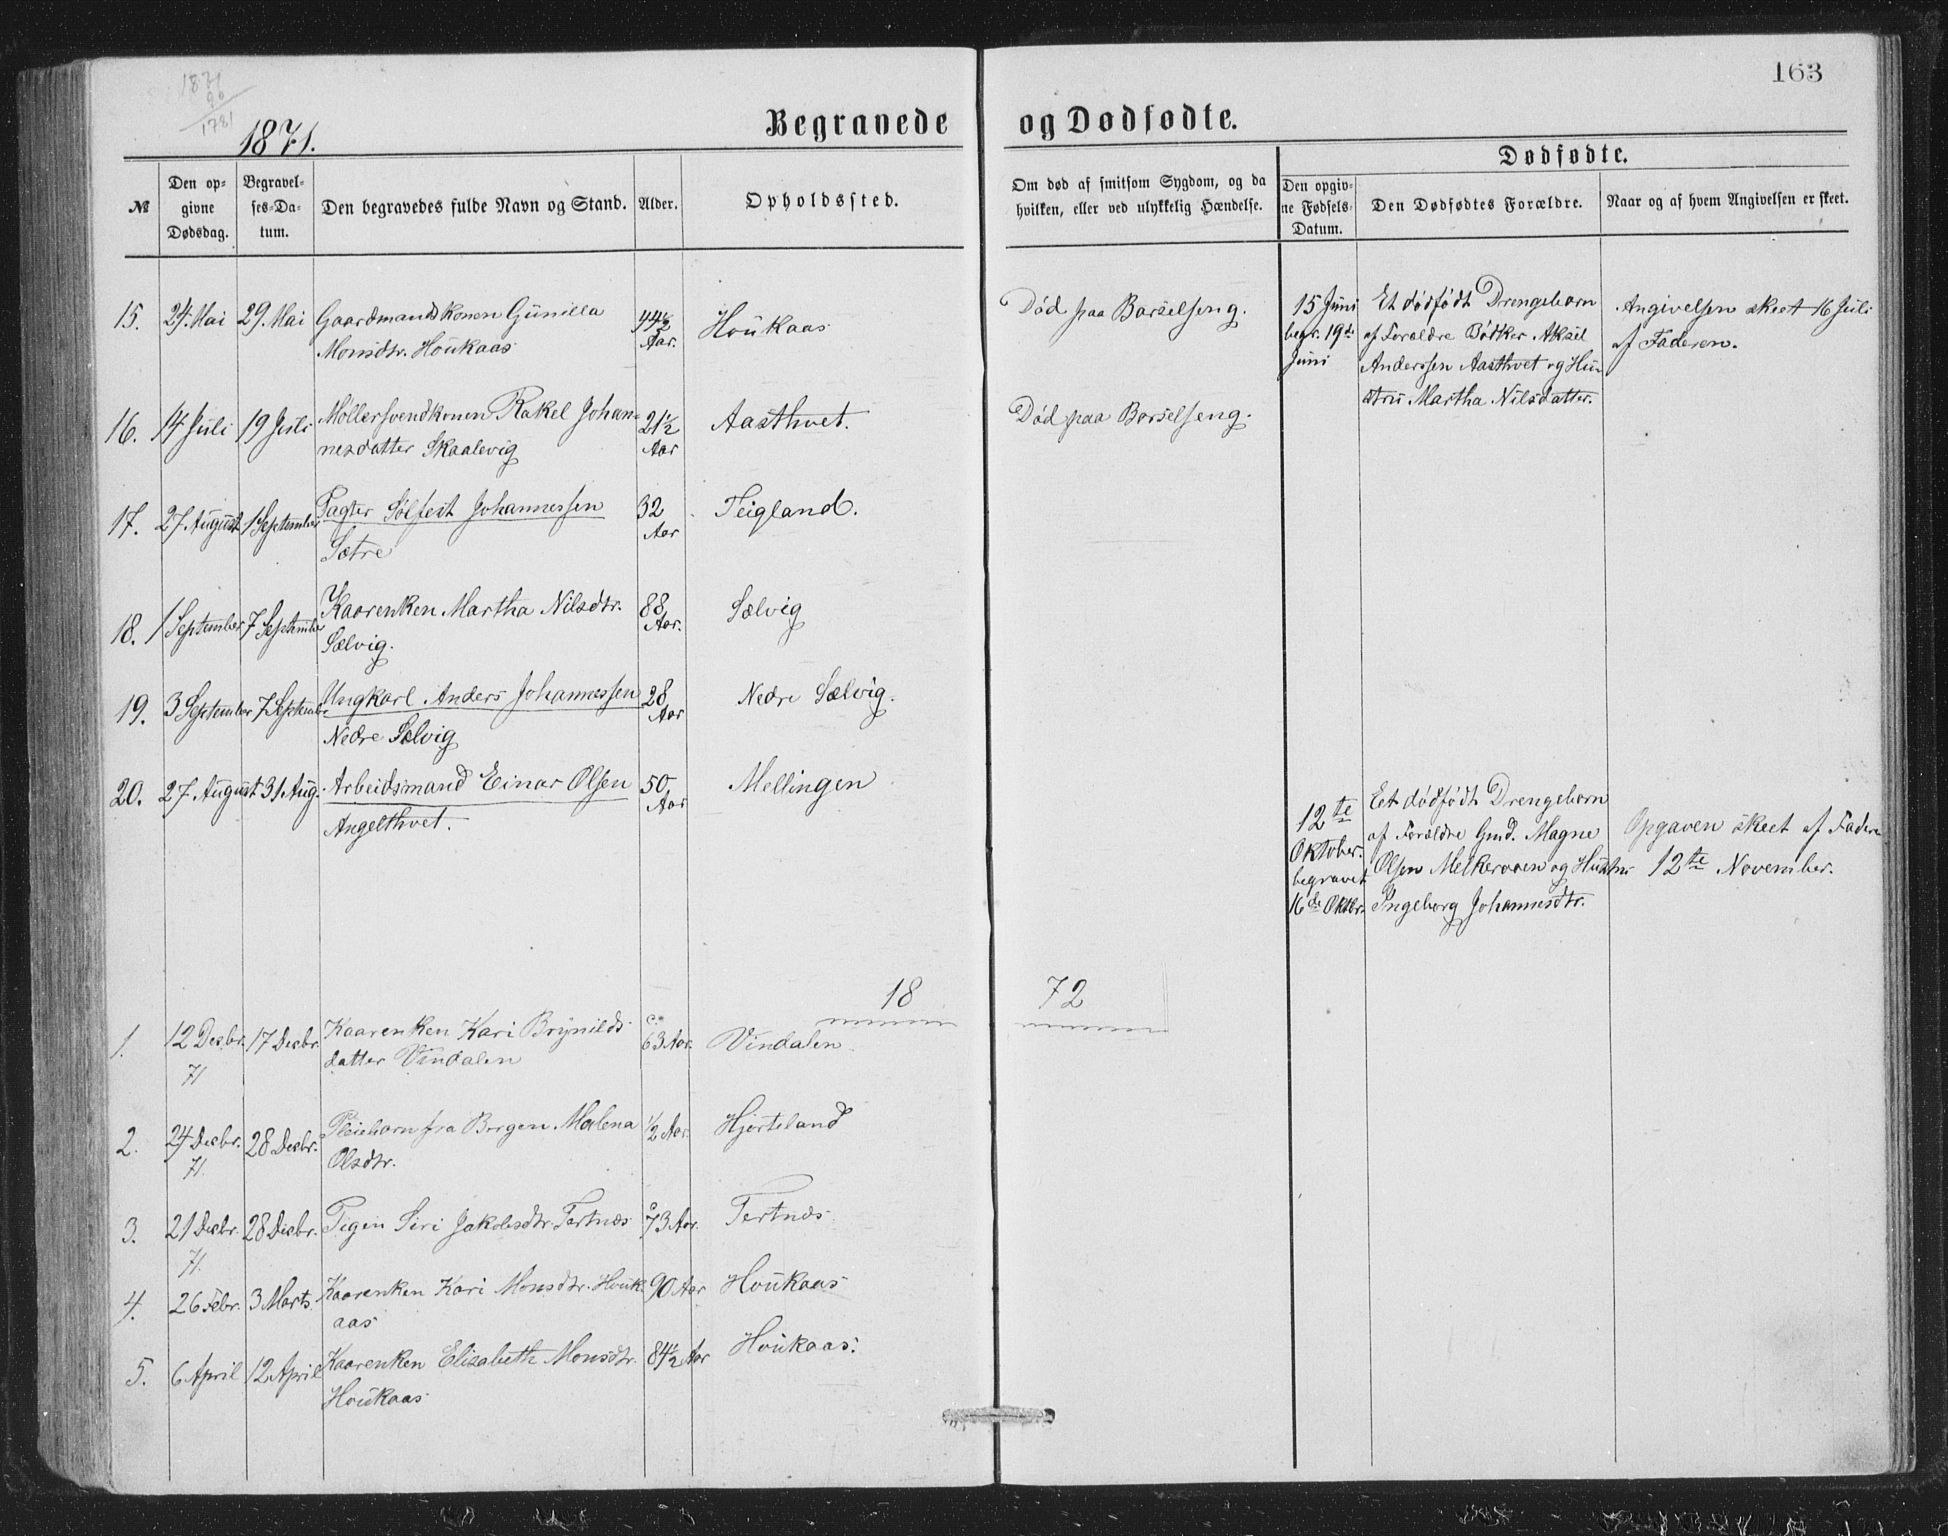 163
1871
90
1781
1871.
Begravede og Dødfødte.
Dødfødte.
№
Den op-
givne
Dødsdag.
Begravel-
ses-Da-
tum.
Den begravedes fulde Navn og Stand.
Alder.
Opholdssted.
Om død af smitsom Sygdom, og da
hvilken, eller ved ulykkelig Hændelse.
Den opgiv-
ne Fødsels-
Datum.
Den Dødfødtes Forældre.
Naar og af hvem Angivelsen er skeet.
15. 24. Mai 29. Mai Gaardmandskonen Gunilla 44½ Houkaas Død paa Barselseng.
Monsdtr. Houkaas Aar.
15 Juni Et dødfødt Drengebarn Angivelsen skeet 16 Juli
begr. 19de af Forældre Bødker Aksel af Faderen.
Juni Anderssen Aasthvet og Hu-
stru Martha Nilsdatter.
16. 14 Juli 19 Juli Møllersvendkonen Rakel Johan- 21½ Aasthvet. Død paa Barselseng.
nesdatter Skaalevig Aar
17. 27. August 1 September Pagter Sølfest Johannessen 32 Teigland.
Sætre Aar
18. 1 September 7 September Kaarenken Martha Nilsdtr. 88 Sælvig
Sælvig. Aar.
19. 3 September 7 September Ungkarl Anders Johannessen 28 Nedre Sælvig.
Nedre Sælvig Aar
20. 27 August 31 Aug. Arbeidsmand Einar Olsen 50 Mellingen
Angelthvet. Aar
12te Eet dødfødt Drengebarn
Oktober. af Forældre Gmd. Magne Opgaven skeet af Fadere
begravet Olsen Melkeraaen og Hustru 12te November.
16de Oktbr. Ingeborg Johannesdtr.
18 72
1. 12 Decbr. 17 Decbr. Kaarenken Kari Brynilds- 63 Aar. Vindalen
71 datter Vindalen
2. 24 Decbr. 28 Decbr. Pleiebarn fra Bergen Malena ½ Aar. Hjorteland
71. Olsdtr.
3. 21 Decbr. 28 Decbr. Pigen Siri Jakobsdtr. Tertnæs 73 Aar. Tertnæs
71.
4. 26 Febr. 3 Marts. Kaarenken Kari Monsdtr. Houk- 90 Aar Houkaas
aas
5. 6 April 12 April Kaarenken Elisabeth Monsdtr. 84½ Aar Houkaas.
Houkaas